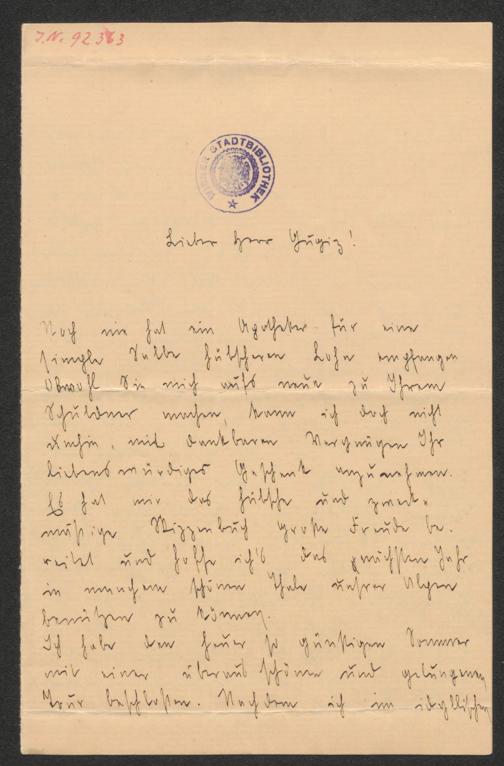 J.N. 92363
WIENER STADTBIBLIOTHEK
Lieber Herr Gugiz!
Noch nie hat ein Apotheker für eine
simple Salbe hübscheren Lohn empfangen
Obwohl Sie mich aufs neue zu Ihrem
Schuldner machen, kann ich doch nicht
umhin, mit dankbaren Vergnügen Ihr
liebenswürdiges Geschenk anzunehmen.
Es hat mir das hübsche und zweck-
mäßige Skizzenbuch große Freude be-
reitet und hoffe ich's das nächsten Jahr
in manchem schönen Thale unsrer Alpen
benützen zu können.
Ich habe den heuer so günstigen Sommer
mit einer überaus schönen und gelungenen
Tour beschloßen. Nachdem ich im idyllischen